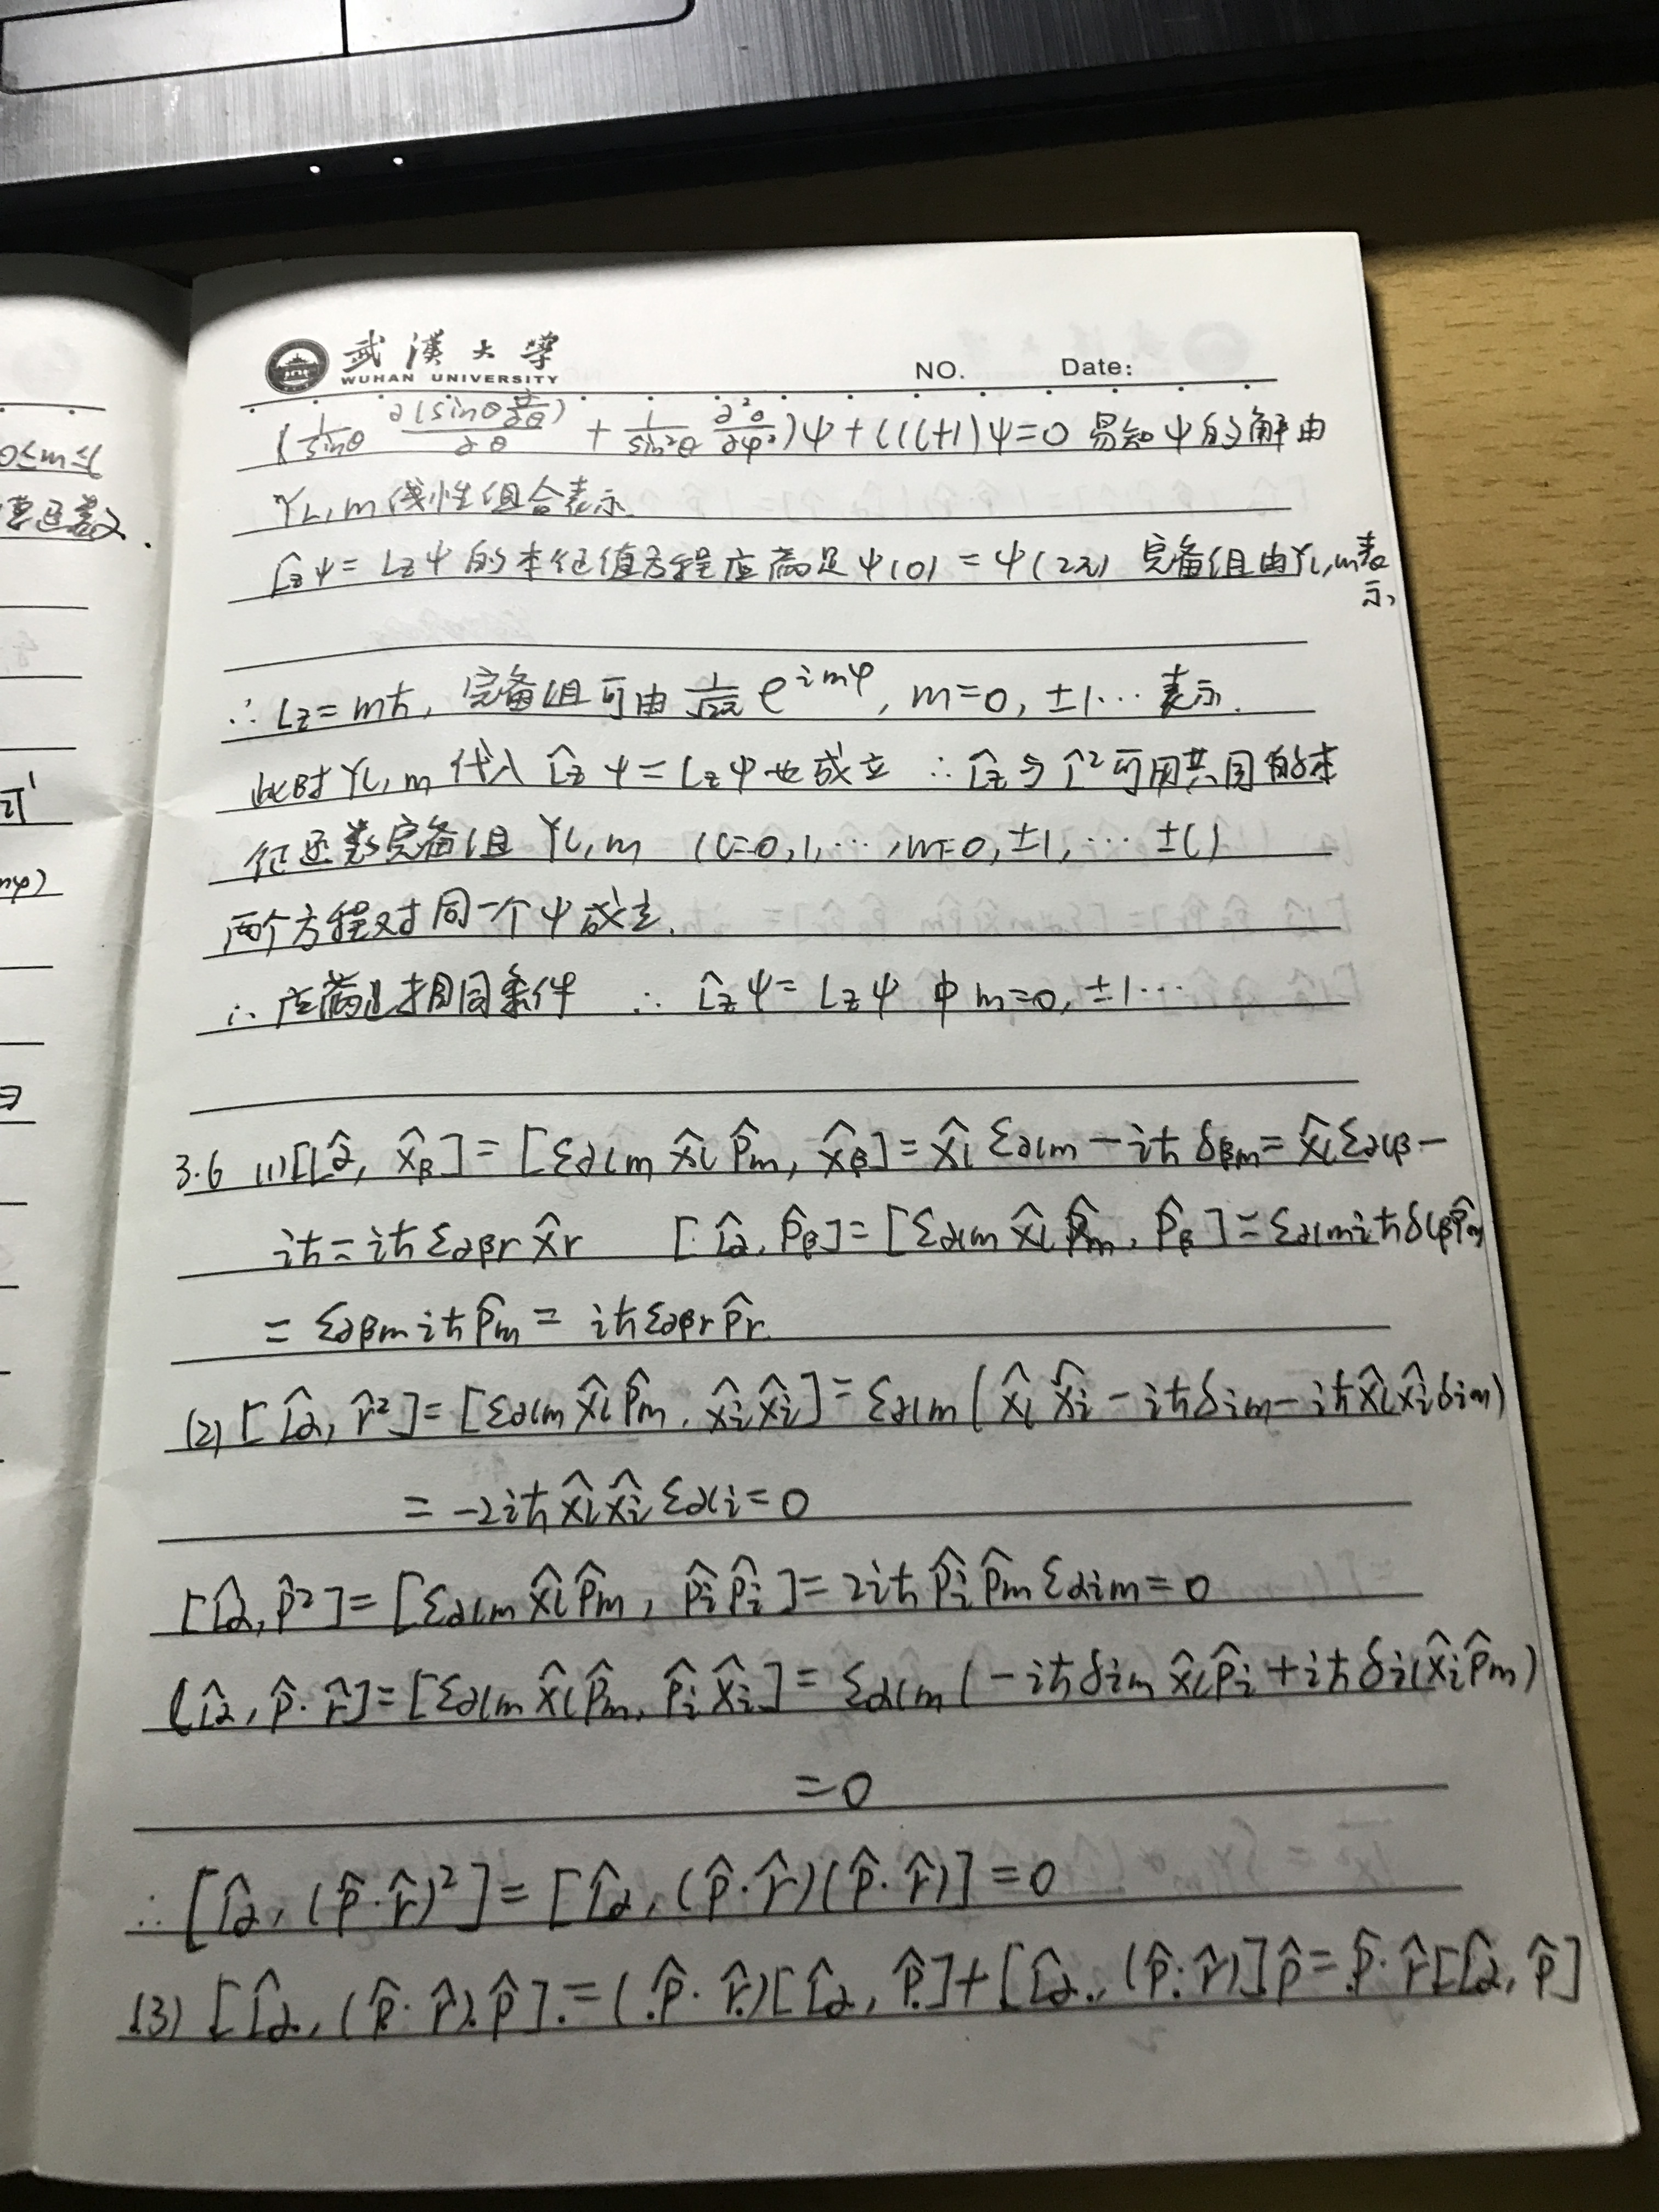 武漢大學
WUHAN UNIVERSITY
NO. Date:
0≤m≤l
(1/sinθ ∂(sinθ ∂/∂θ)/∂θ + 1/sin²θ ∂²/∂φ²)ψ + l(l+1)ψ=0 易知ψ的解由
Yl,m 线性组合表示.
L̂zψ = Lzψ 的本征值方程应满足ψ(0) = ψ(2π) 完备组由Yl,m表
示,
∴ Lz = mħ, 完备组可由 1/√2π e^{imφ}, m=0, ±1… 表示.
此时Yl,m 代入 L̂zψ = Lzψ也成立 ∴ L̂z与L̂²可用共同的本
征函数完备组 Yl,m (l=0,1,…,m=0,±1,… ±l)
两个方程对同一个ψ成立.
∴ 应满足相同条件 ∴ L̂zψ = Lzψ 中 m=0, ±1…
3.6 (1)[l̂α, x̂β] = [εαlm x̂l p̂m, x̂β] = x̂l εαlm −iħ δβm = x̂l εαlβ −
iħ = iħ εαβr x̂r [l̂α, p̂β] = [εαlm x̂l p̂m, p̂β] = εαlm iħ δlβ p̂m
= εαβm iħ p̂m = iħ εαβr p̂r.
(2) [l̂α, r̂²] = [εαlm x̂l p̂m, x̂i x̂i] = εαlm ( x̂l x̂i −iħ δim −iħ x̂l x̂i δim)
= −2iħ x̂l x̂i εαli = 0
[l̂α, p̂²] = [εαlm x̂l p̂m, p̂i p̂i] = 2iħ p̂i p̂m εαim = 0
[l̂α, p̂·r̂] = [εαlm x̂l p̂m, p̂i x̂i] = εαlm (−iħ δim x̂l p̂i + iħ δil x̂i p̂m)
= 0
∴ [l̂α, (p̂·r̂)²] = [l̂α, (p̂·r̂)(p̂·r̂)] = 0
(3) [l̂α, (p̂·r̂)p̂] = (p̂·r̂)[l̂α, p̂] + [l̂α, (p̂·r̂)]p̂ = p̂·r̂[l̂α, p̂]